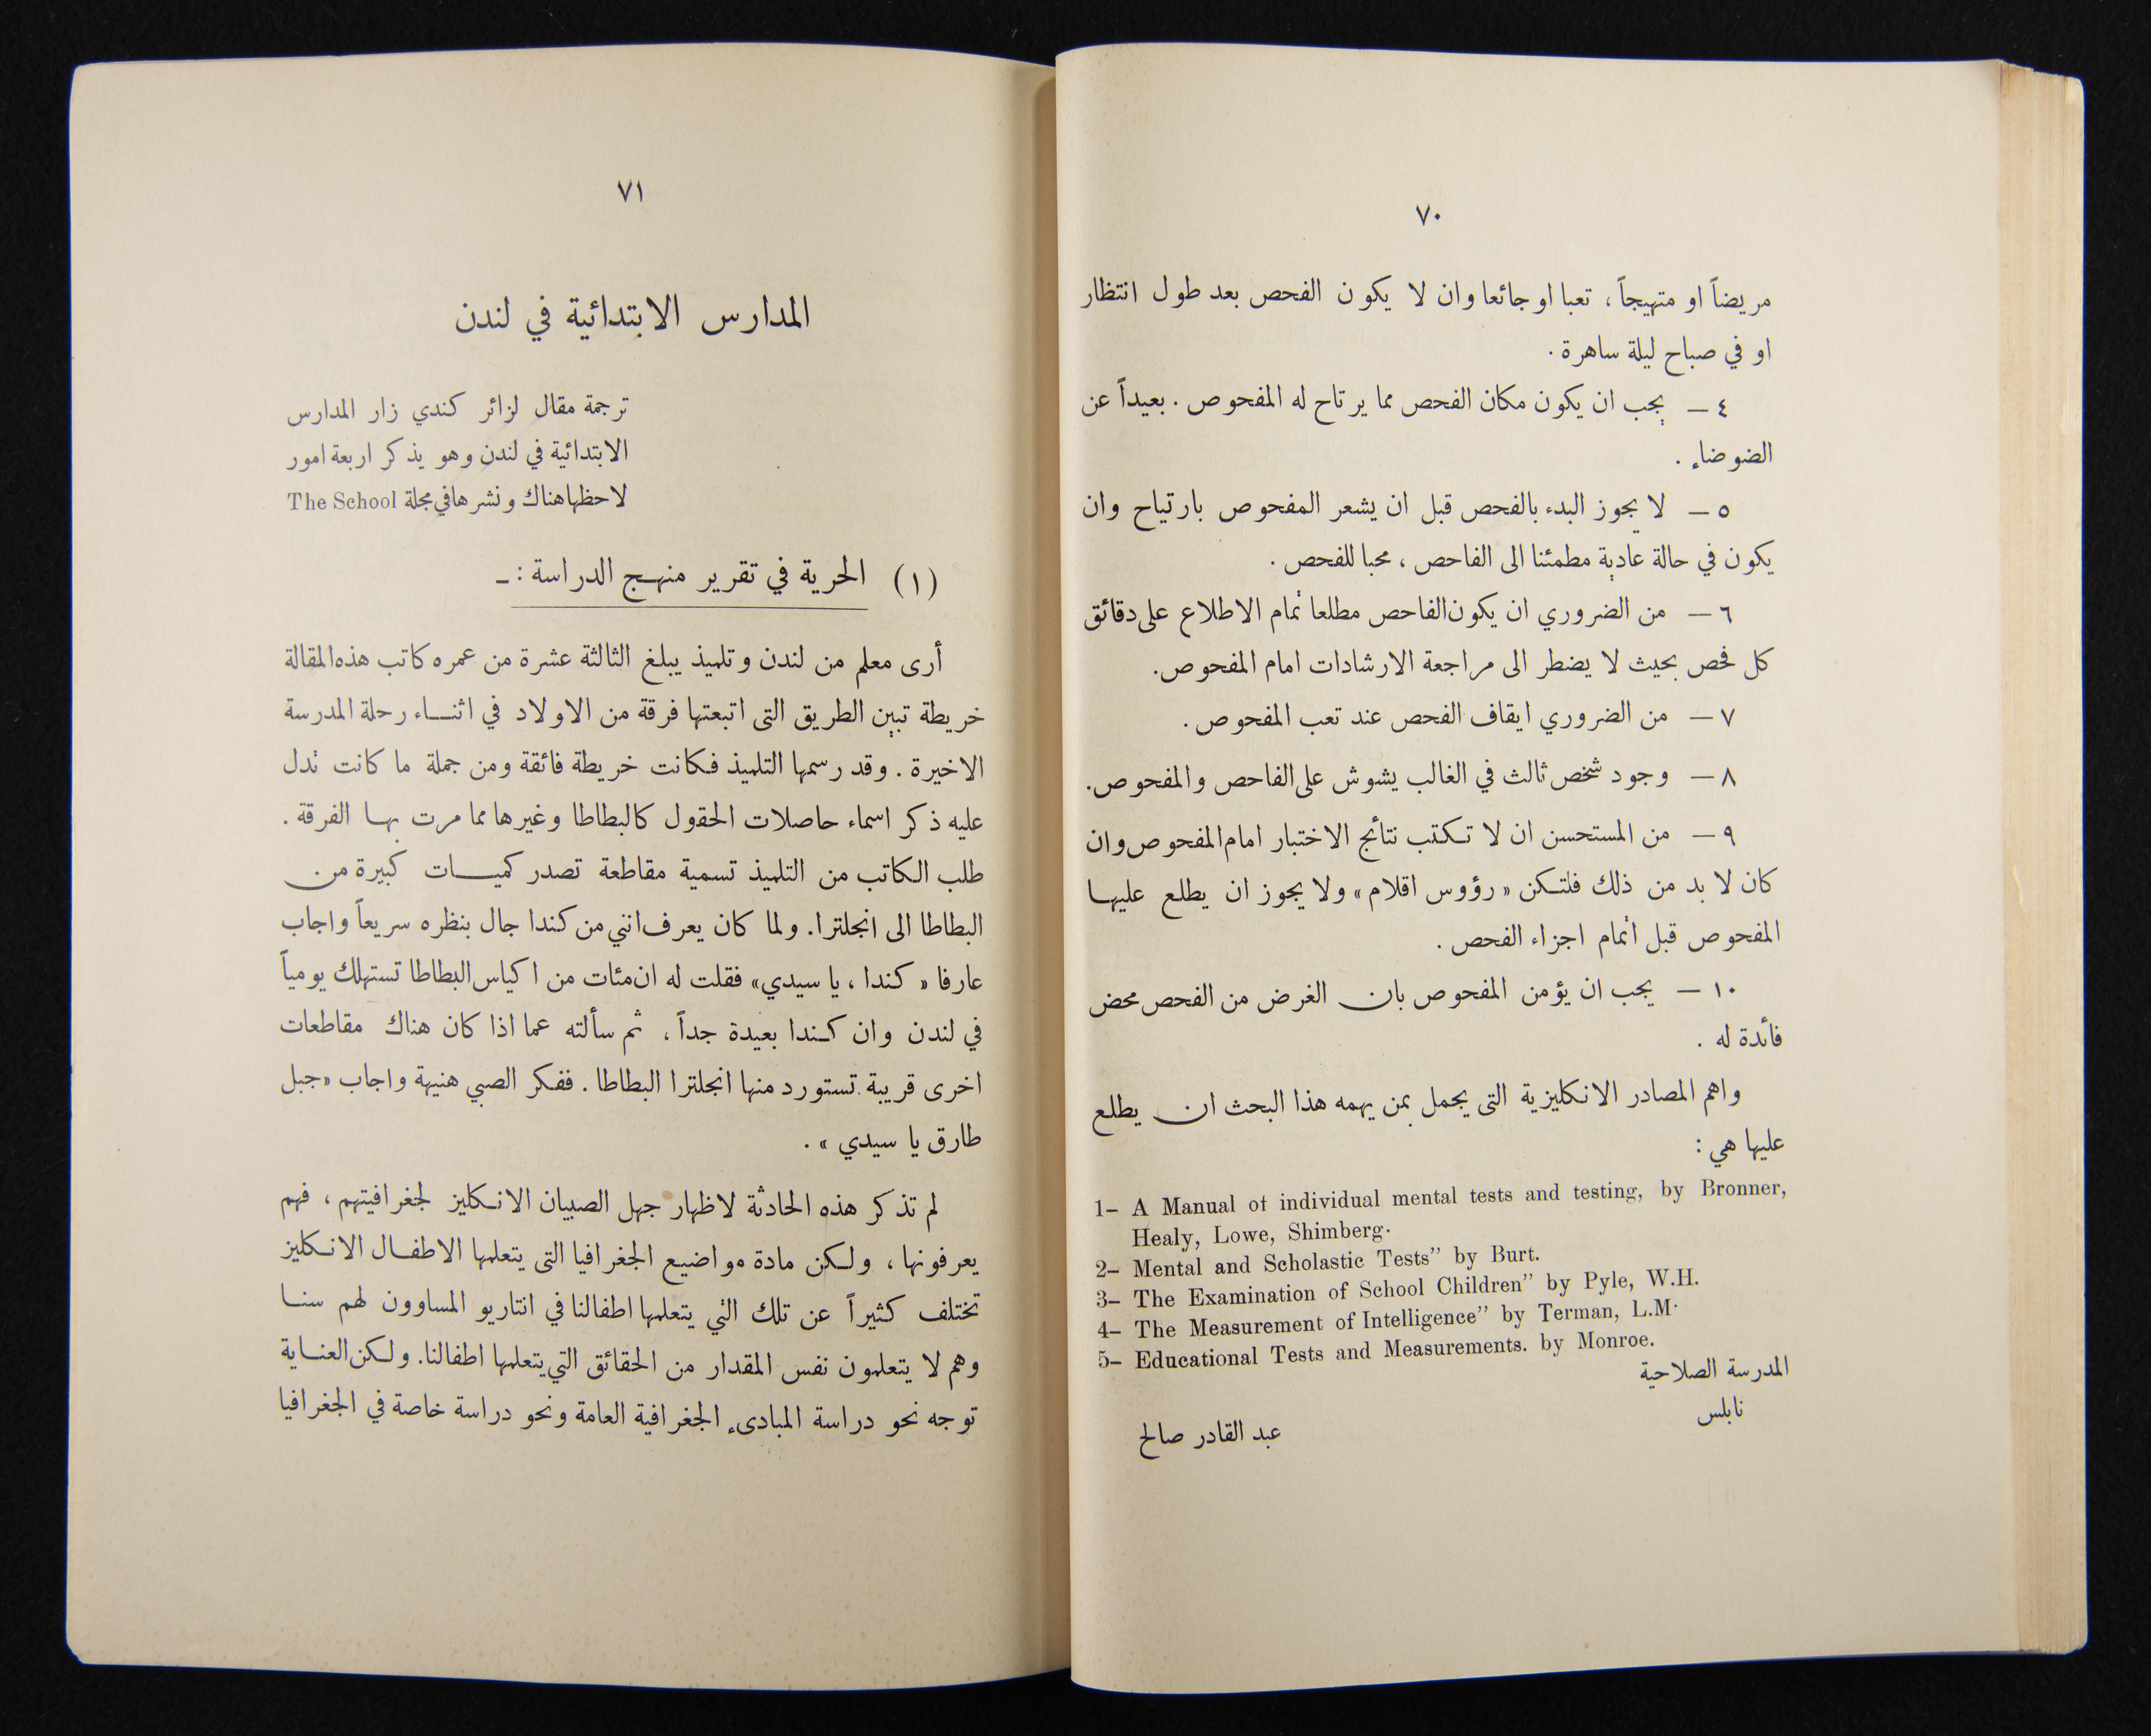 ٧٠
مريضاً او متهيجاً ، تعبا او جائعا وان لا يكون الفحص بعد طول انتظار
او في صباح ليلة ساهرة .
٤ — يجب ان يكون مكان الفحص مما يرتاح له المفحوص . بعيداً عن
الضوضاء .
٥ — لا يجوز البدء بالفحص قبل ان يشعر المفحوص بارتياح وان
يكون في حالة عادية مطمئنا الى الفاحص ، محبا للفحص .
٦ — من الضروري ان يكون الفاحص مطلعا تمام الاطلاع على دقائق
كل فحص بحيث لا يضطر الى مراجعة الارشادات امام المفحوص .
٧ — من الضروري ايقاف الفحص عند تعب المفحوص .
٨ — وجود شخص ثالث في الغالب يشوش على الفاحص والمفحوص .
٩ — من المستحسن ان لا تكتب نتائج الاختبار امام المفحوص وان
كان لا بد من ذلك فلتكن « رؤوس اقلام » ولا يجوز ان يطلع عليها
المفحوص قبل اتمام اجزاء الفحص .
١٠ — يجب ان يؤمن المفحوص بان الغرض من الفحص محض
فائدة له .
واهم المصادر الانكليزية التى يجمل بمن يهمه هذا البحث ان يطلع
عليها هي :
1– A Manual of individual mental tests and testing, by Bronner,
Healy, Lowe, Shimberg.
2– Mental and Scholastic Tests” by Burt.
3– The Examination of School Children” by Pyle, W.H.
4– The Measurement of Intelligence” by Terman, L.M.
5– Educational Tests and Measurements. by Monroe.
المدرسة الصلاحية
نابلس
عبد القادر صالح
٧١
المدارس الابتدائية في لندن
ترجمة مقال لزائر كندي زار المدارس
الابتدائية في لندن وهو يذكر اربعة امور
لاحظها هناك ونشرها في مجلة The School
(١) الحرية في تقرير منهج الدراسة : –
أرى معلم من لندن وتلميذ يبلغ الثالثة عشرة من عمره كاتب هذه المقالة
خريطة تبين الطريق التى اتبعتها فرقة من الاولاد في اثناء رحلة المدرسة
الاخيرة . وقد رسمها التلميذ فكانت خريطة فائقة ومن جملة ما كانت تدل
عليه ذكر اسماء حاصلات الحقول كالبطاطا وغيرها مما مرت بها الفرقة .
طلب الكاتب من التلميذ تسمية مقاطعة تصدر كميات كبيرة من
البطاطا الى انجلترا . ولما كان يعرف انني من كندا جال بنظره سريعاً واجاب
عارفا « كندا ، يا سيدي » فقلت له ان مئات من اكياس البطاطا تستهلك يومياً
في لندن وان كندا بعيدة جداً ، ثم سألته عما اذا كان هناك مقاطعات
اخرى قريبة تستورد منها انجلترا البطاطا . ففكر الصبي هنيهة واجاب « جبل
طارق يا سيدي » .
لم تذكر هذه الحادثة لاظهار جهل الصبيان الانكليز لجغرافيتهم ، فهم
يعرفونها ، ولكن مادة مواضيع الجغرافيا التى يتعلمها الاطفال الانكليز
تختلف كثيراً عن تلك التي يتعلمها اطفالنا في انتاريو المساوون لهم سنا
وهم لا يتعلمون نفس المقدار من الحقائق التي يتعلمها اطفالنا . ولكن العناية
توجه نحو دراسة المبادىء الجغرافية العامة ونحو دراسة خاصة في الجغرافيا